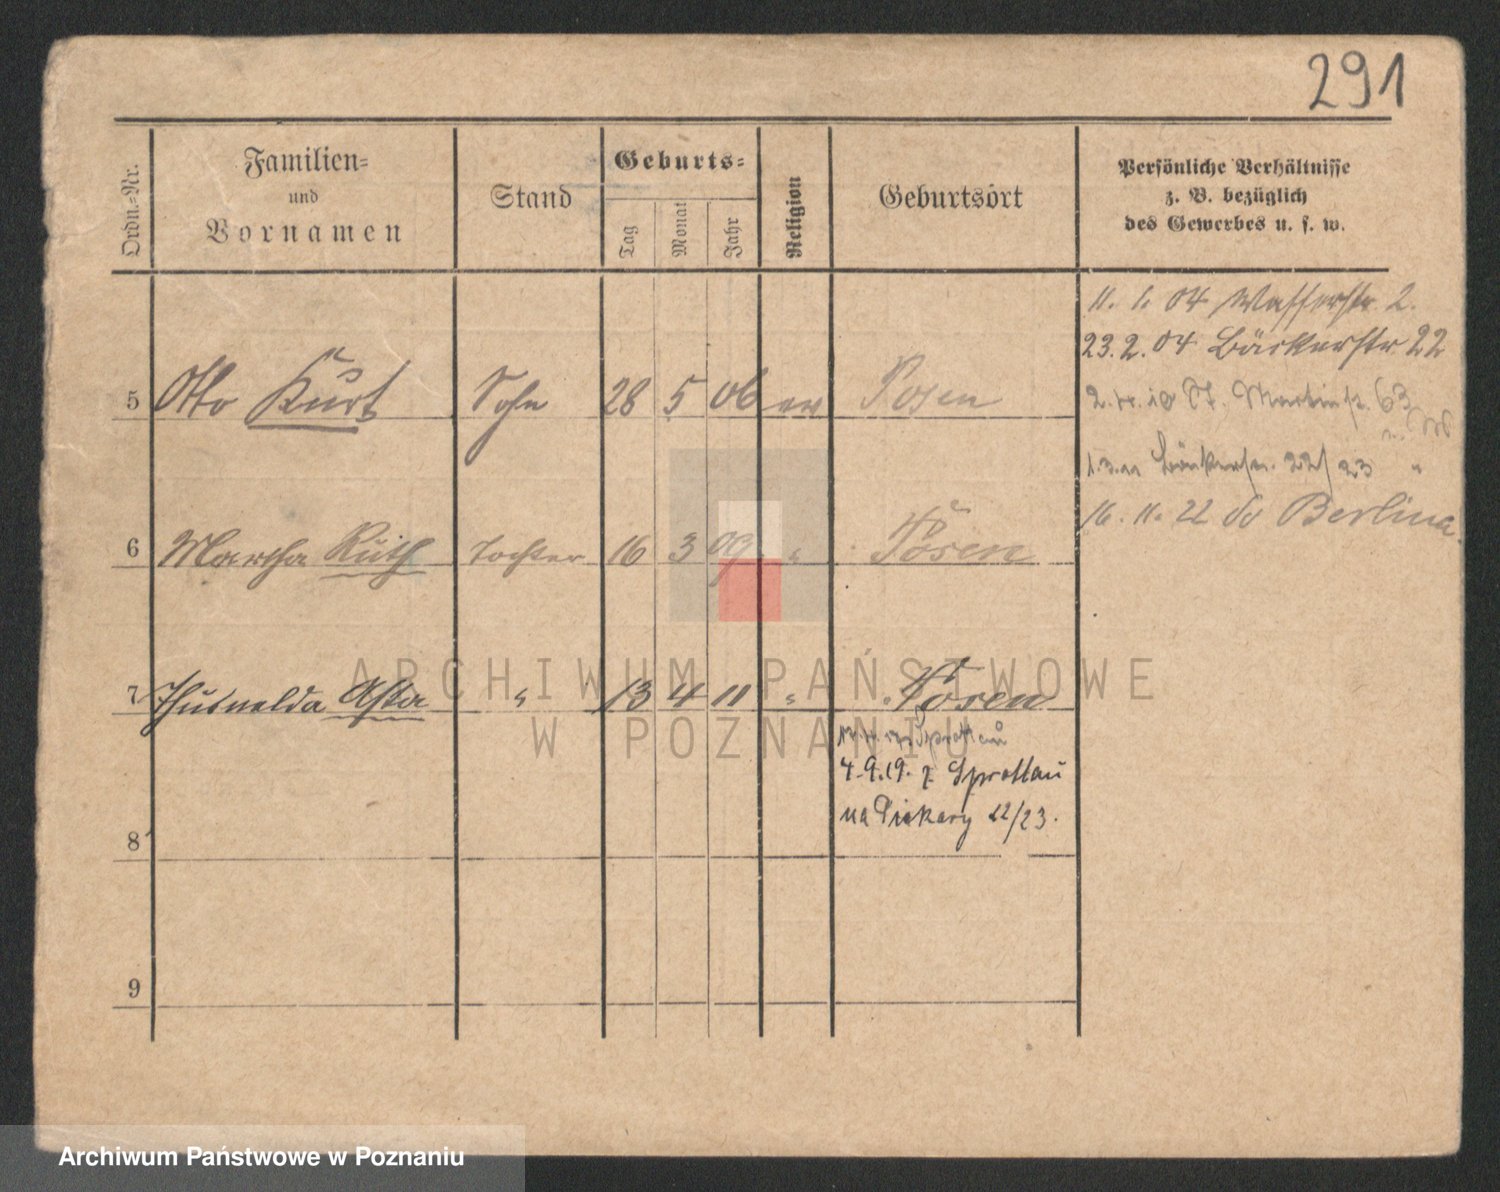 291
Ordn.-Nr.
Familien-
und
Vornamen
Stand
Geburts-
Tag
Monat
Jahr
Religion
Geburtsort
Persönliche Verhältnisse
z. B. bezüglich
des Gewerbes u. s. w.
11. 1. 04 Wasserstr. 2.
23. 2. 04 Bäckerstr 22
5 Otto Kurt Sohn 28 5 06 ev Posen
Martinstr. 63
Bäckerstr. 22/23 "
16. 11. 22 do Berlina.
6 Martha Ruth Tochter 16 3 09 " Posen
7 Thusnelda Asta " 13 4 11 " Posen
Sprottau
4.9.19. z Sprottau
na Piekary 22/23.
8
9
ARCHIWUM PAŃSTWOWE
W POZNANIU
Archiwum Państwowe w Poznaniu